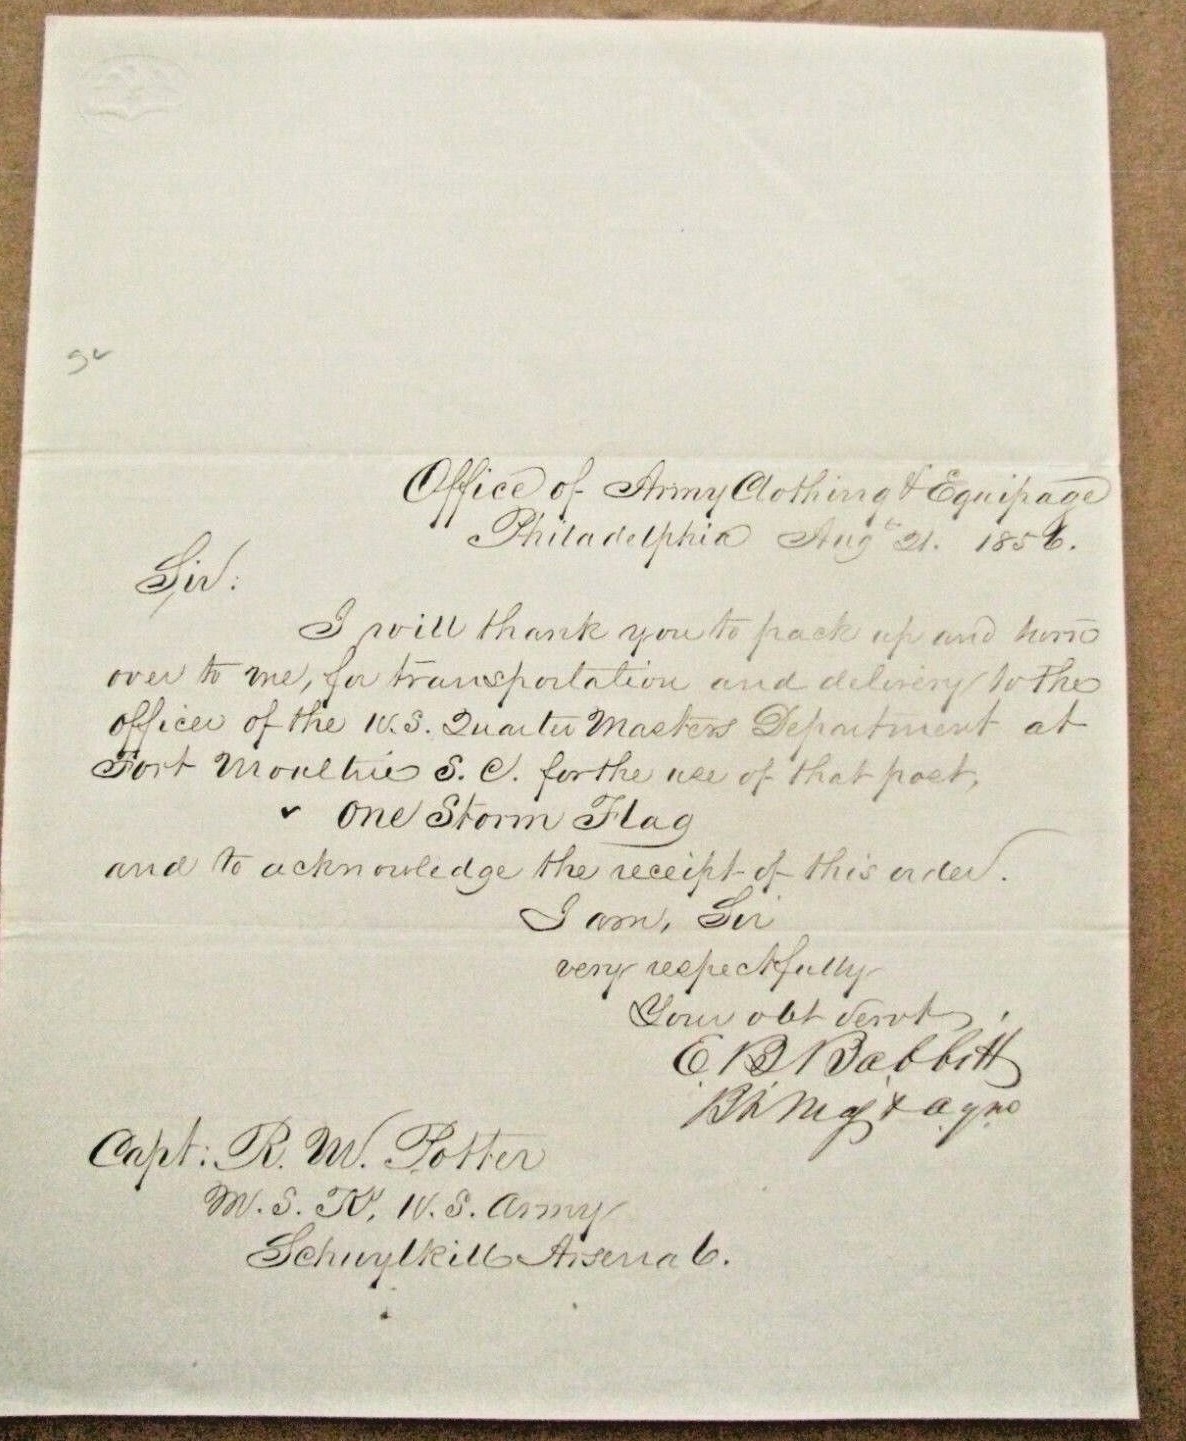 Office of Army Clothing & Equipage
Philadelphia Augt 21. 1856.
Sir:
I will thank you to pack up and turn
over to me, for transportation and delivery to the
officer of the U.S. Quarter Masters Department at
Fort Moultrie S. C. for the use of that post,
✓ One Storm Flag
and to acknowledge the receipt of this order.
I am, Sir
very respectfully
Your obt servt,
E B Babbitt
Bt Maj & a.q.m.
Capt: R. W. Potter
M. S. K, U. S. Army
Schuylkill Arsenal.